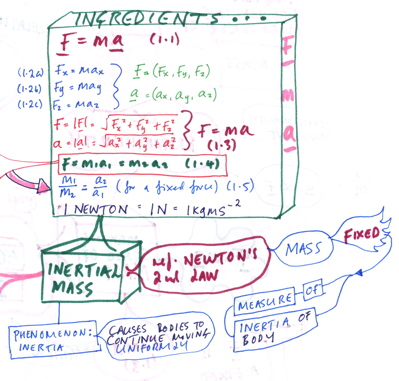 INGREDIENTS • • •
F = ma (1.1)
(1.2a) Fx = max
(1.2b) Fy = may
(1.2c) Fz = maz
F = (Fx, Fy, Fz)
a = (ax, ay, az)
F = |F| = √Fx² + Fy² + Fz²
a = |a| = √ax² + ay² + az²
F = ma
(1.3)
F = m1a1 = m2a2 (1.4)
m1/m2 = a2/a1 (for a fixed force) (1.5)
1 NEWTON = 1N = 1kgms⁻²
F
m
a
INERTIAL
MASS
ref. NEWTON'S
2nd LAW
MASS
FIXED
MEASURE OF
INERTIA OF
BODY
PHENOMENON:
INERTIA
CAUSES BODIES TO
CONTINUE MOVING
UNIFORMLY